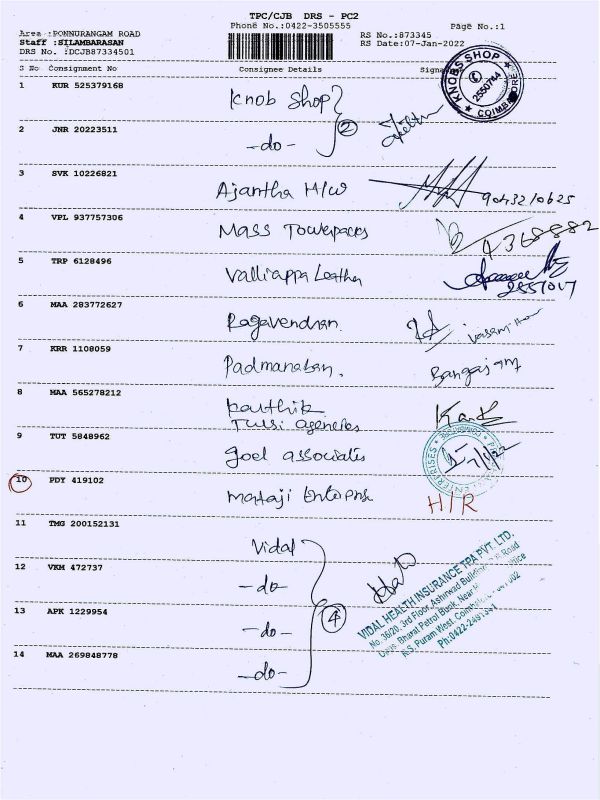 TPC/CJB DRS - PC2
Area :PONNURANGAM ROAD
Phone No.:0422-3505555
Page No.:1
Staff :SILAMBARASAN
RS No:873345
DRS No. :DCJB87334501
RS Date:07-Jan-2022
S No Consignment No Consignee Details
KNOBS SHOP
2550744
COIMBATORE
1 KUR 525379168 Knob Shop
2 JNR 20223511 -do- 2
3 SVK 10226821 Ajantha H/W
4 VPL 937757306 Mass Towerpacks
5 TRP 6128496 Valliappa Leather
2551017
6 MAA 283772627 Ragavendran.
7 KRR 1108059 Padmanaban.
Bangajam
8 MAA 565278212 Karthik
Tulsi agencies
Kartk
9 TUT 5848962 Goel associates
ENTERPRISES
7/1/22
10 PDY 419102 Mataji Enterprise
H/R
11 TMG 200152131 Vidal
12 VKM 472737 -do-
13 APK 1229954 -do- 4
14 MAA 269848778 -do-
VIDAL HEALTH INSURANCE TPA PVT. LTD.
No. 36/20, 3rd Floor, Ashirwad Building, Road
Opp. Bharat Petrol Bunk, Near Office
R.S. Puram West, Coimbatore
Ph:0422-